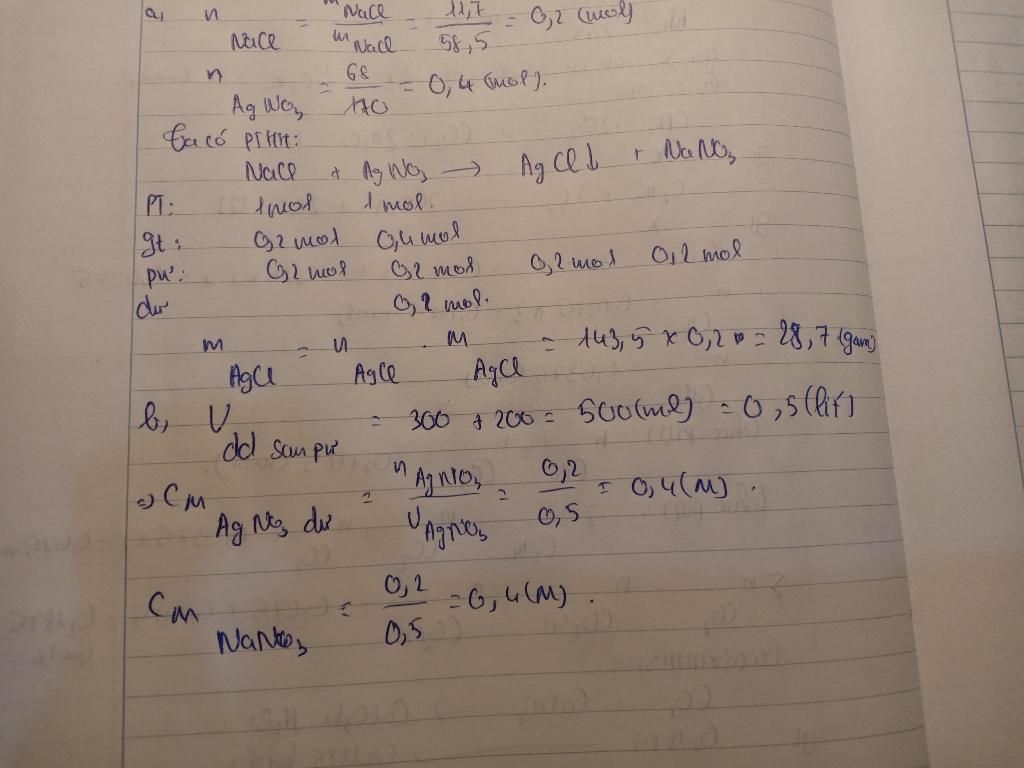 a, n NaCl = m NaCl / m NaCl = 11,7 / 58,5 = 0,2 (mol)
n AgNO3 = 68 / 170 = 0,4 (mol).
Ta có PTHH:
NaCl + AgNO3 → AgCl↓ + NaNO3
PT: 1mol 1 mol.
gt: 0,2 mol 0,4 mol
pư: 0,2 mol 0,2 mol 0,2 mol 0,2 mol
dư 0,2 mol.
m AgCl = n AgCl . M AgCl = 143,5 x 0,2 = 28,7 (gam)
b, V dd sau pư = 300 + 200 = 500 (ml) = 0,5 (lít)
=> CM AgNO3 dư = n AgNO3 / V AgNO3 = 0,2 / 0,5 = 0,4 (M).
CM NaNO3 = 0,2 / 0,5 = 0,4 (M).